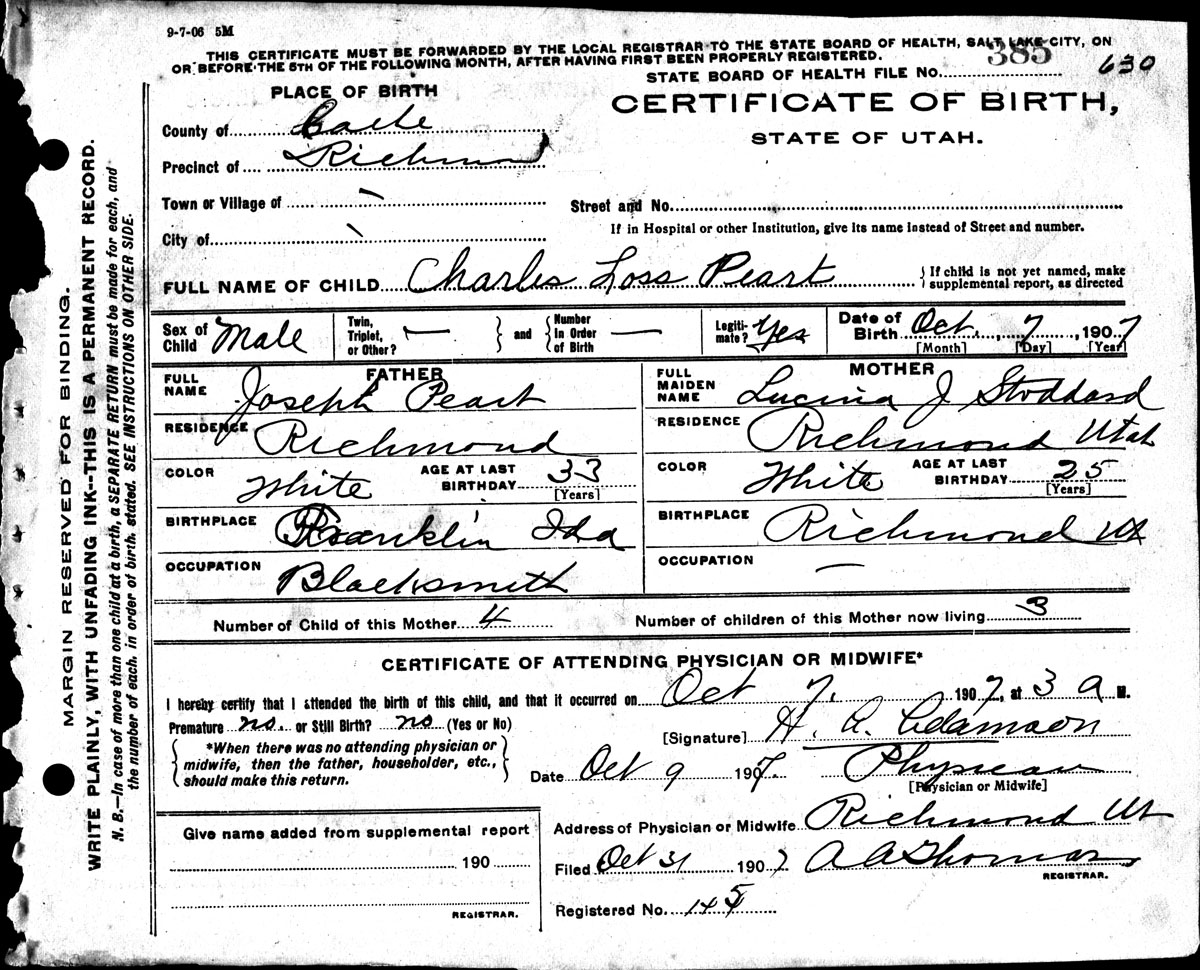 9-7-06 5M
THIS CERTIFICATE MUST BE FORWARDED BY THE LOCAL REGISTRAR TO THE STATE BOARD OF HEALTH, SALT LAKE CITY, ON
OR BEFORE THE 5TH OF THE FOLLOWING MONTH, AFTER HAVING FIRST BEEN PROPERLY REGISTERED.
STATE BOARD OF HEALTH FILE No. 385 630
PLACE OF BIRTH
CERTIFICATE OF BIRTH,
STATE OF UTAH.
County of Cache
Precinct of Richmond
Town or Village of —
Street and No.
City of —
If in Hospital or other Institution, give its name instead of Street and number.
FULL NAME OF CHILD Charles Loss Peart { If child is not yet named, make supplemental report, as directed
Sex of Child Male Twin, Triplet, or Other? — and Number in Order of Birth — Legiti-mate? Yes Date of Birth Oct. 7, 1907
[Month] [Day] [Year]
FATHER
FULL NAME Joseph Peart
RESIDENCE Richmond
COLOR White AGE AT LAST BIRTHDAY 33 [Years]
BIRTHPLACE Franklin Ida
OCCUPATION Blacksmith
MOTHER
FULL MAIDEN NAME Lucina J Stoddard
RESIDENCE Richmond Utah
COLOR White AGE AT LAST BIRTHDAY 25 [Years]
BIRTHPLACE Richmond Ut
OCCUPATION —
Number of Child of this Mother 4 Number of children of this Mother now living 3
CERTIFICATE OF ATTENDING PHYSICIAN OR MIDWIFE*
I hereby certify that I attended the birth of this child, and that it occurred on Oct 7. 1907, at 3 a M.
Premature no. or Still Birth? no (Yes or No)
[Signature] H. A. Adamson
*When there was no attending physician or
midwife, then the father, householder, etc.,
should make this return.
Date Oct 9 1907. Physician
[Physician or Midwife]
Give name added from supplemental report
190
REGISTRAR.
Address of Physician or Midwife Richmond Ut
Filed Oct 31 1907 A A Thomas
REGISTRAR.
Registered No. 145
MARGIN RESERVED FOR BINDING.
WRITE PLAINLY, WITH UNFADING INK--THIS IS A PERMANENT RECORD.
N. B.—In case of more than one child at a birth, a SEPARATE RETURN must be made for each, and
the number of each, in order of birth, stated. SEE INSTRUCTIONS ON OTHER SIDE.